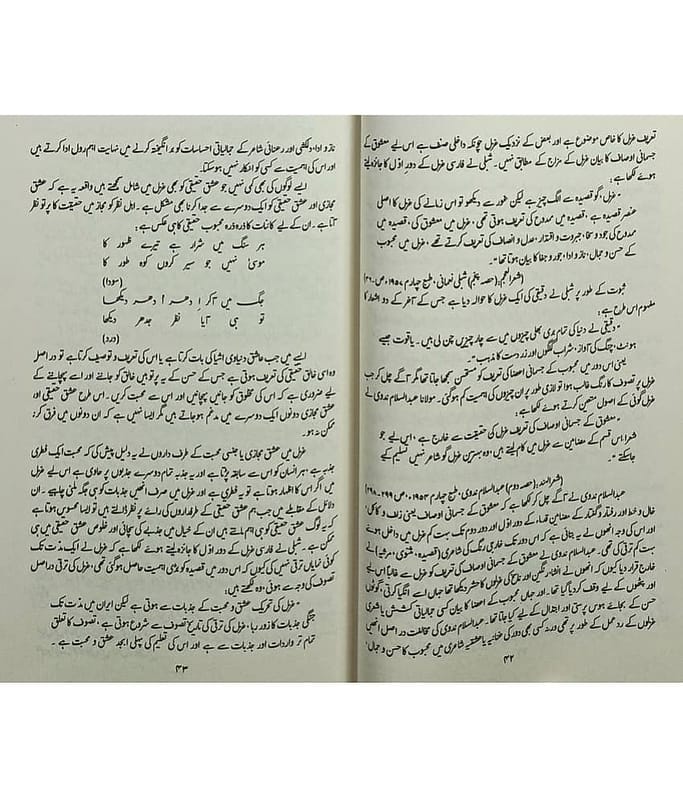 تعریف غزل کا خاص موضوع ہے اور بعض کے نزدیک غزل چونکہ داخلی صنف ہے اس لیے معشوق کے
جسمانی اوصاف کا بیان غزل کے مزاج کے مطابق نہیں۔ شبلی نے فارسی غزل کے دورِ اوّل کا جائزہ لیتے
ہوئے لکھا ہے:
"غزل، گو قصیدہ سے الگ چیز ہے لیکن غور سے دیکھو تو اس زمانے کی غزل کا اصلی
عنصر قصیدہ ہے، قصیدہ میں ممدوح کی تعریف ہوتی تھی، غزل میں معشوق کی، قصیدہ میں
ممدوح کی جود و سخا، جبروت و اقتدار، عدل و انصاف کی تعریف کرتے تھے، غزل میں محبوب
کے حسن و جمال، ناز و ادا، جور و جفا کا بیان ہوتا تھا"۔
(شعرالعجم (حصہ پنجم) شبلی نعمانی، طبع چہارم ۱۹۵۷، ص۔۳۶)
ثبوت کے طور پر شبلی نے دقیقی کی ایک غزل کا حوالہ دیا ہے جس کے آخر کے دو اشعار کا
مفہوم اس طرح ہے:
"دقیقی نے دنیا کی تمام بری بھلی چیزوں میں سے چار چیزیں چن لی ہیں۔ یاقوت جیسے
ہونٹ، چنگ کی آواز، شراب گلگوں اور زردشت کا مذہب"۔
یعنی اس دور میں محبوب کے جسمانی اعضا کی تعریف کو مستحسن سمجھا جاتا تھا مگر آگے چل کر جب
غزل پر تصوف کا رنگ غالب ہوا تو لازمی طور پر ان چیزوں کی اہمیت کم ہو گئی۔ مولانا عبدالسلام ندوی نے
غزل گوئی کے اصول متعین کرتے ہوئے لکھا ہے:
"معشوق کے جسمانی اوصاف کی تعریف غزل کی حقیقت سے خارج ہے، اس لیے جو
شعرا اس قسم کے مضامین سے غزل میں کام لیتے ہیں، وہ بہترین غزل گو شاعر نہیں تسلیم کیے
جاسکتے"۔
(شعرالہند، (حصہ دوم) عبدالسلام ندوی، طبع چہارم ۱۹۵۳ء، ص ۲۹۹۔۲۹۸)
عبدالسلام ندوی نے آگے چل کر لکھا ہے کہ معشوق کے جسمانی اوصاف یعنی زلف و کاکل،
خال و خط اور رفتار و گفتار کے مضامین قدماء کے دور اوّل اور دور دوم تک بہت کم غزل میں داخل ہوئے
اور اس کی وجہ انھوں نے یہ بتائی ہے کہ اس دور تک خارجی رنگ کی شاعری (قصیدہ، مثنوی، مرثیہ) نے
بہت کم ترقی کی تھی۔ عبدالسلام ندوی نے معشوق کے جسمانی اوصاف کی تعریف کو غزل سے غالباً اس لیے
خارج قرار دیا کیوں کہ انھوں نے افشار نگین اور ناسخ کی غزلوں کا حشر دیکھا تھا جہاں اسے انگیا کرتی، گوٹوں
اور پٹھوں کے لیے وقف کر دیا گیا تھا۔ اور جہاں محبوب کے اعضا کا بیان کسی جمالیاتی کشش یا شعری
حسن کے بجائے ہوس پرستی اور ابتذال کے لیے کیا جاتا تھا۔ عبدالسلام ندوی کی مخالفت دراصل انھیں
غزلوں کے ردِ عمل کے طور پر تھی ورنہ کسی بھی دور کی غنائیہ یا عشقیہ شاعری میں محبوب کا حسن و جمال،
۴۲
ناز و ادا، دلکشی اور رعنائی شاعر کے جمالیاتی احساسات کو برانگیختہ کرنے میں نہایت اہم رول ادا کرتے ہیں
اور اس کی اہمیت سے کسی کو انکار نہیں ہو سکتا۔
ایسے لوگوں کی بھی کمی نہیں جو عشق حقیقی کو بھی غزل میں شامل سمجھتے ہیں واقعہ یہ ہے کہ عشق
مجازی اور عشق حقیقی کو ایک دوسرے سے جدا کرنا بھی مشکل ہے۔ اہل نظر کو مجاز میں حقیقت کا پرتو نظر
آتا ہے۔ ان کے لیے کائنات کا ذرہ ذرہ محبوب حقیقی کا ہی عکس ہے:
ہر سنگ میں شرار ہے تیرے ظہور کا
موسیٰ نہیں جو سیر کروں کوہ طور کا
(سودا)
جگ میں آکر اِدھر اُدھر دیکھا
تو ہی آیا نظر جدھر دیکھا
(درد)
ایسے میں جب عاشق دنیاوی اشیا کی بات کرتا ہے یا اس کی تعریف و توصیف کرتا ہے تو دراصل
وہ اسی خالق حقیقی کی تعریف ہوتی ہے جس کے حسن کے یہ پرتو ہیں خالق کو جاننے اور اسے پہچاننے کے
لیے ضروری ہے کہ اس کی مخلوق کو جانیں پہچانیں اور اس سے محبت کریں۔ اس طرح عشق حقیقی اور
عشق مجازی دونوں ایک دوسرے میں مدغم ہو جاتے ہیں مگر ایسا نہیں ہے کہ ان دونوں میں فرق کرنا
ممکن نہ ہو۔
غزل میں عشق مجازی یا جنسی محبت کے طرف داروں نے یہ دلیل پیش کی کہ محبت ایک فطری
جذبہ ہے ہر انسان کو اس سے سابقہ پڑتا ہے اور یہ جذبہ تمام دوسرے جذبوں پر حاوی ہے اس لیے غزل
میں اگر اس کا اظہار ہوتا ہے تو یہ فطری ہے اور غزل میں صرف انھیں جذبات کو ہی جگہ ملنی چاہیے۔ ان
دلائل کے مقابلے میں جب ہم عشق حقیقی کے طرفداروں کی رائے پر نظر ڈالتے ہیں تو ایسا محسوس ہوتا ہے
کہ یہ لوگ عشق حقیقی کو ہی اہم مانتے ہیں ان کے خیال میں جذبے کی سچائی اور خلوص عشق حقیقی میں ہی
ممکن ہے۔ شبلی نے فارسی غزل کے دور اوّل کا جائزہ لیتے ہوئے لکھا ہے کہ غزل نے ایک مدت تک
کوئی نمایاں ترقی نہیں کی کیوں کہ اس دور میں قصیدہ کو بڑی اہمیت حاصل ہو گئی تھی، غزل کی ترقی دراصل
تصوف کی وجہ سے ہوئی، وہ لکھتے ہیں:
"غزل کی تحریک عشق و محبت کے جذبات سے ہوتی ہے لیکن ایران میں مدت تک
جنگی جذبات کا زور رہا، غزل کی ترقی کی تاریخ تصوف سے شروع ہوتی ہے، تصوف کا تعلق
تمام تر واردات اور جذبات سے ہے اور اس کی تعلیم کی پہلی ابجد عشق و محبت ہے۔
۴۳